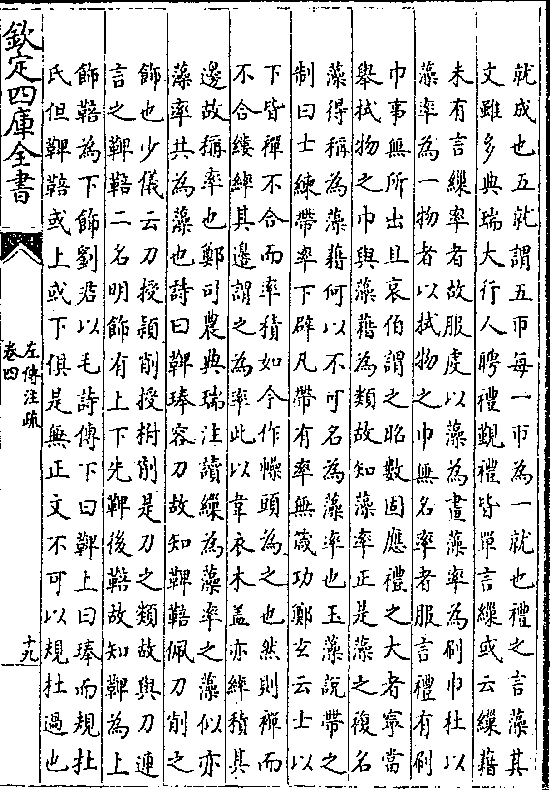 就成也五就謂五帀每一帀為一就也禮之言藻其
文雖多典瑞大行人聘禮覲禮皆單言繅或云繅藉
未有言繅率者故服䖍以藻為畫藻率為刷巾杜以
藻率為一物者以拭物之巾無名率者服言禮有刷
巾事無所出且哀伯謂之昭數固應禮之大者寧當
舉拭物之巾與藻藉為類故知藻率正是藻之復名
藻得稱為藻藉何以不可名為藻率也玉藻說帶之
制曰士練帶率下辟凡帶有率無箴功鄭玄云士以
下皆襌不合而率積如今作幧頭為之也然則襌而
不合縷繂其邊謂之為率此以韋衣木蓋亦繂積其
邊故稱率也鄭司農典瑞注讀繅為藻率之藻似亦
藻率共為藻也詩曰鞞琫容刀故知鞞鞛佩刀削之
飾也少儀云刀授頴削授柎削是刀之類故與刀連
言之鞞鞛二名明飾有上下先鞞後鞛故知鞞為上
飾鞛為下飾劉君以毛詩傳下曰鞞上曰琫而規杜
氏但鞞鞛或上或下俱是無正文不可以規杜過也
欽定四庫全書
左傳注疏
卷四
十九